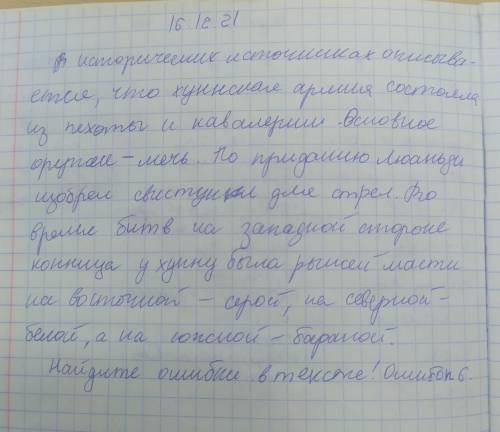 16.12.21
В исторических источниках описыва-
ется, что хуннская армия состояла
из пехоты и кавалерии. Основное
оружие - меч. По приданию Люаньди
изобрел свистунки для стрел. Во
время битв на западной стороне
конница у хунну была рыжей масти
на восточной - серой, на северной -
белой, а на южной - бараной.
Найдите ошибки в тексте! Ошибок 6.